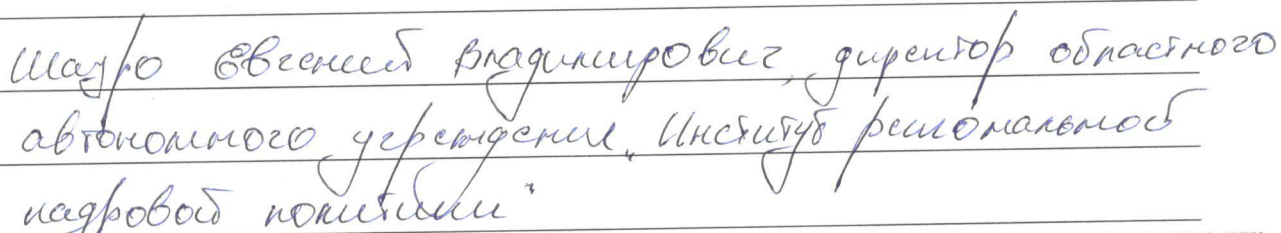 Шауро Евгений Владимирович, директор областного
автономного учреждения „Институт региональной
кадровой политики"